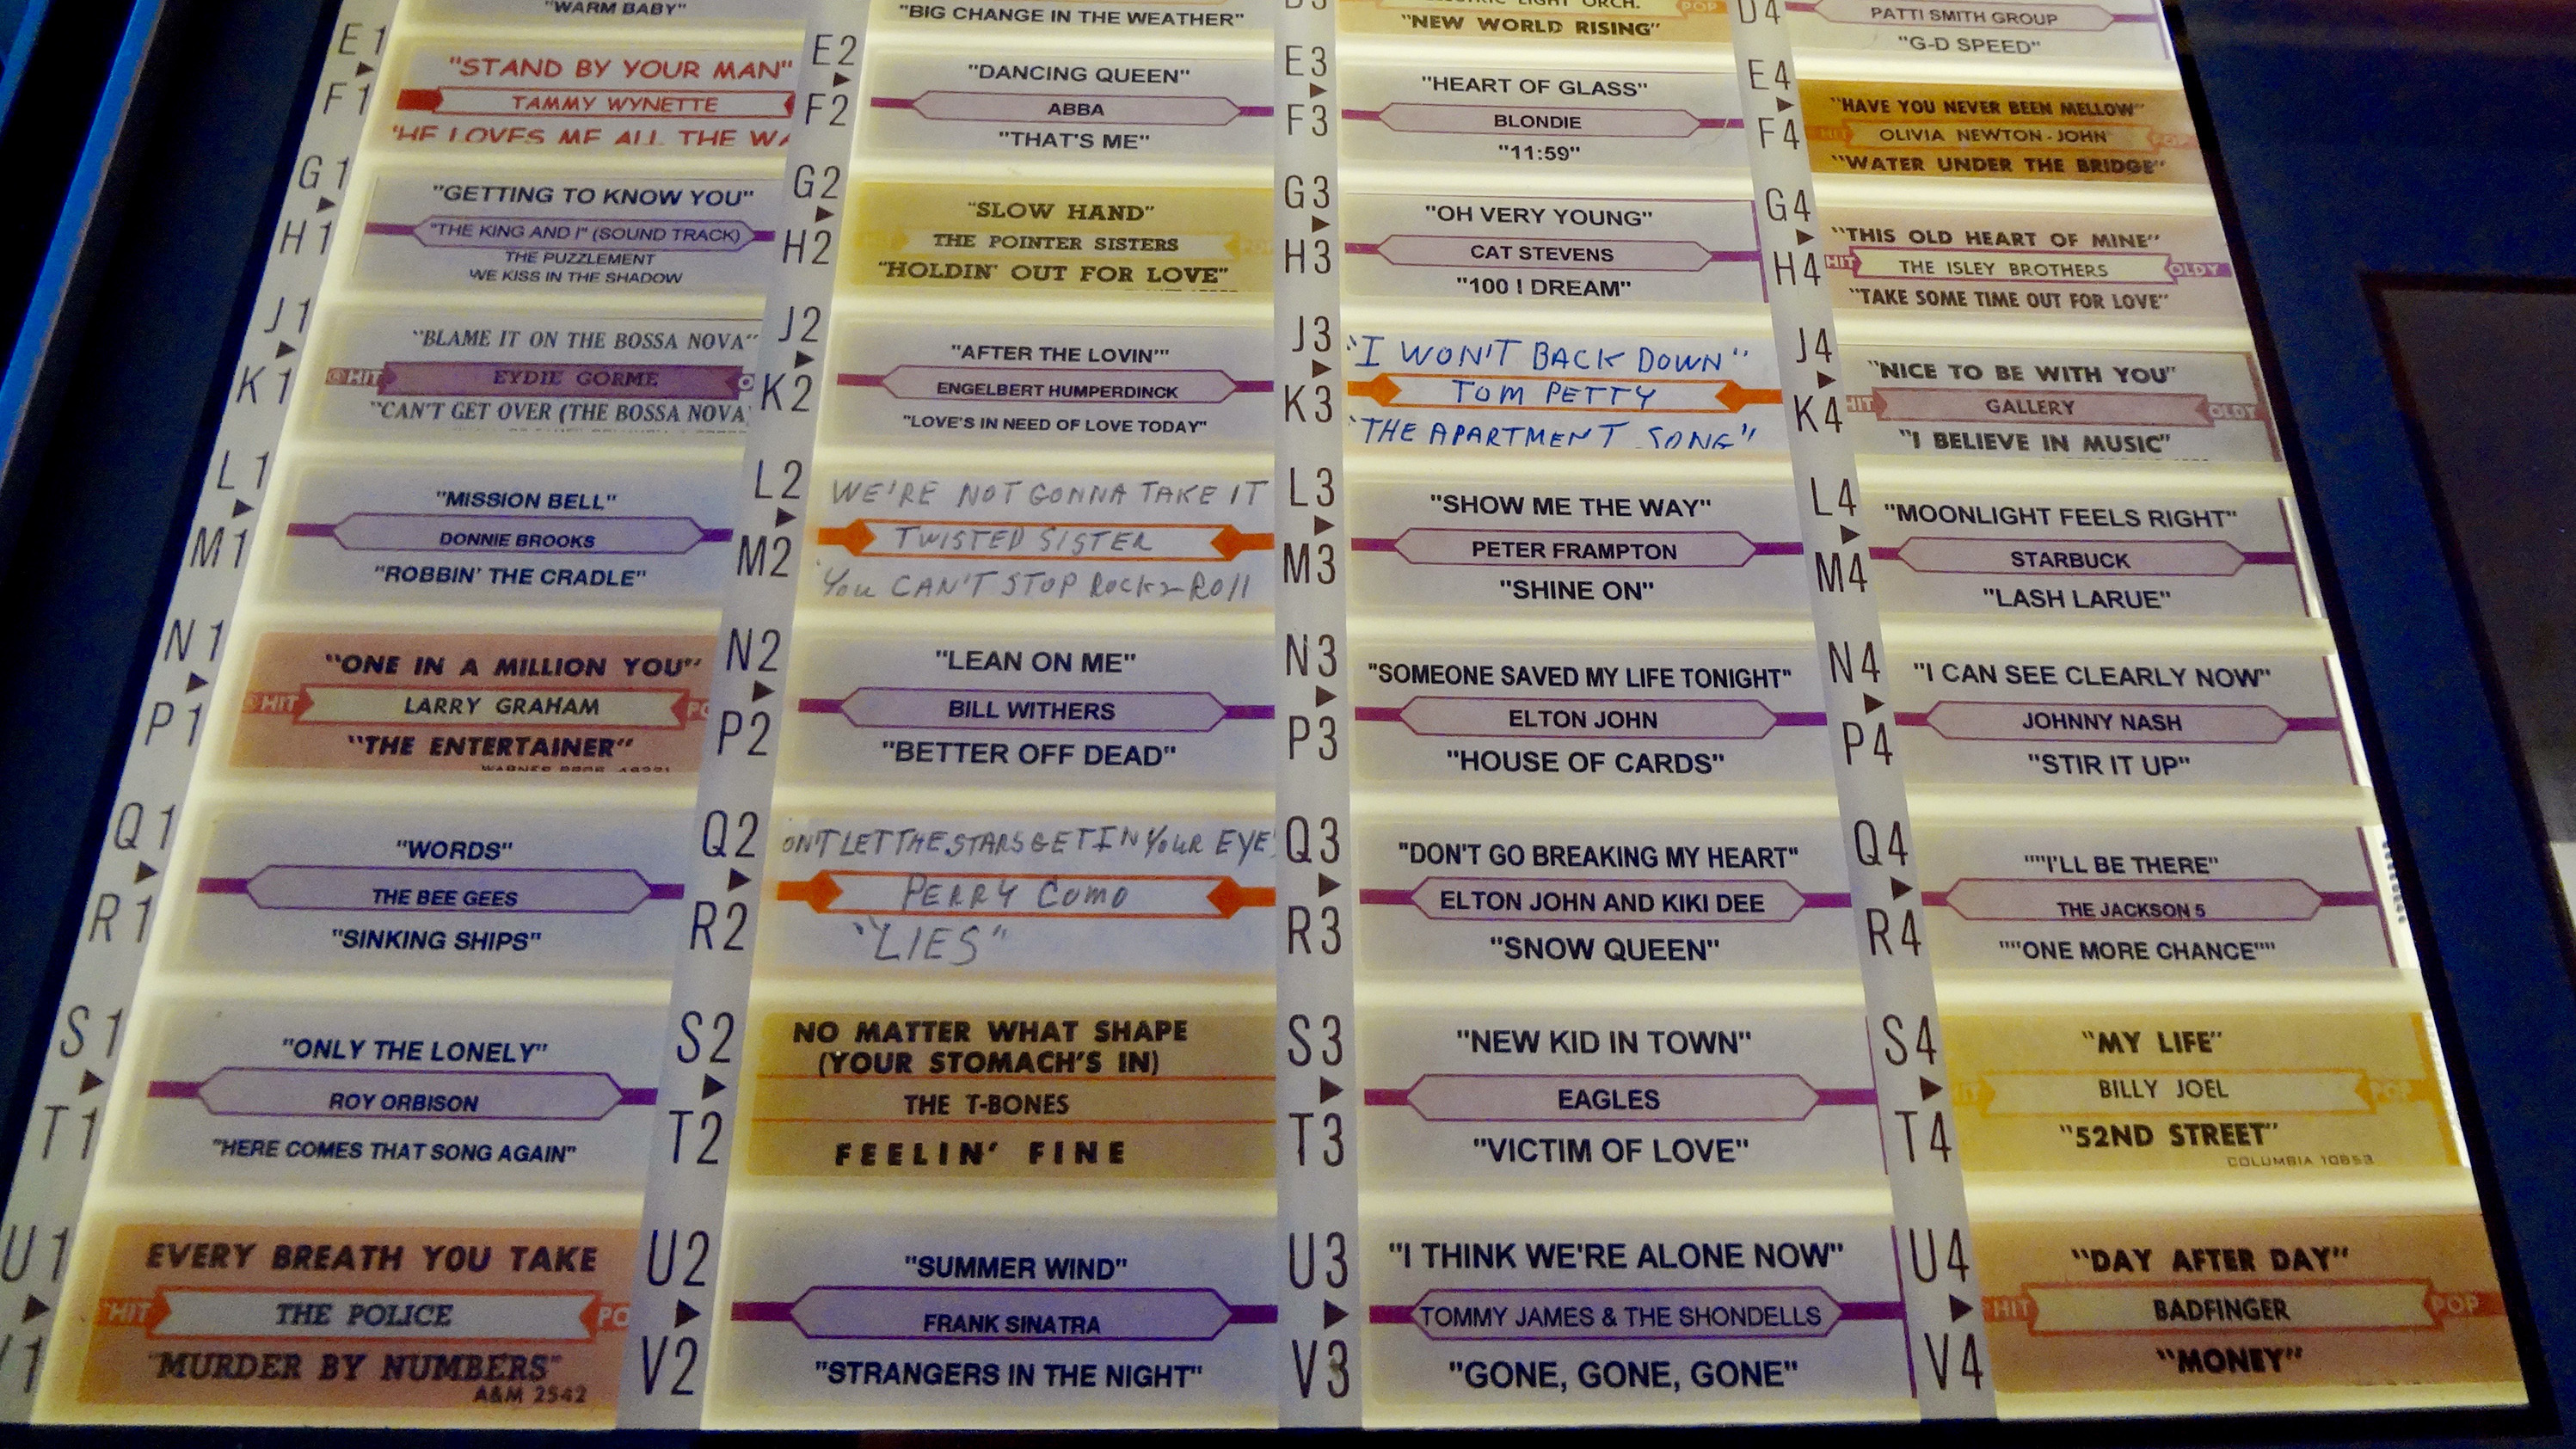 "WARM BABY"
E1
F1
"STAND BY YOUR MAN"
TAMMY WYNETTE
"HE LOVES ME ALL THE WA
G1
H1
"GETTING TO KNOW YOU"
"THE KING AND I" (SOUND TRACK)
THE PUZZLEMENT
WE KISS IN THE SHADOW
J1
K1
"BLAME IT ON THE BOSSA NOVA"
HIT EYDIE GORME O
"CAN'T GET OVER (THE BOSSA NOVA
L1
M1
"MISSION BELL"
DONNIE BROOKS
"ROBBIN' THE CRADLE"
N1
P1
"ONE IN A MILLION YOU"
HIT LARRY GRAHAM PO
"THE ENTERTAINER"
Q1
R1
"WORDS"
THE BEE GEES
"SINKING SHIPS"
S1
T1
"ONLY THE LONELY"
ROY ORBISON
"HERE COMES THAT SONG AGAIN"
U1
V1
EVERY BREATH YOU TAKE
HIT THE POLICE PO
"MURDER BY NUMBERS"
A&M 2542
"BIG CHANGE IN THE WEATHER"
E2
F2
"DANCING QUEEN"
ABBA
"THAT'S ME"
G2
H2
"SLOW HAND"
THE POINTER SISTERS
"HOLDIN' OUT FOR LOVE"
J2
K2
"AFTER THE LOVIN'"
ENGELBERT HUMPERDINCK
"LOVE'S IN NEED OF LOVE TODAY"
L2
M2
WE'RE NOT GONNA TAKE IT
TWISTED SISTER
"YOU CAN'T STOP ROCK N ROLL
N2
P2
"LEAN ON ME"
BILL WITHERS
"BETTER OFF DEAD"
Q2
R2
ON'T LET THE STARS GET IN YOUR EYE
PERRY COMO
"LIES"
S2
T2
NO MATTER WHAT SHAPE
(YOUR STOMACH'S IN)
THE T-BONES
FEELIN' FINE
U2
V2
"SUMMER WIND"
FRANK SINATRA
"STRANGERS IN THE NIGHT"
LIGHT ORCH. POP
"NEW WORLD RISING"
E3
F3
"HEART OF GLASS"
BLONDIE
"11:59"
G3
H3
"OH VERY YOUNG"
CAT STEVENS
"100 I DREAM"
J3
K3
"I WON'T BACK DOWN"
TOM PETTY
"THE APARTMENT SONG"
L3
M3
"SHOW ME THE WAY"
PETER FRAMPTON
"SHINE ON"
N3
P3
"SOMEONE SAVED MY LIFE TONIGHT"
ELTON JOHN
"HOUSE OF CARDS"
Q3
R3
"DON'T GO BREAKING MY HEART"
ELTON JOHN AND KIKI DEE
"SNOW QUEEN"
S3
T3
"NEW KID IN TOWN"
EAGLES
"VICTIM OF LOVE"
U3
V3
"I THINK WE'RE ALONE NOW"
TOMMY JAMES & THE SHONDELLS
"GONE, GONE, GONE"
D4
PATTI SMITH GROUP
"G-D SPEED"
E4
F4
"HAVE YOU NEVER BEEN MELLOW"
HIT OLIVIA NEWTON-JOHN POP
"WATER UNDER THE BRIDGE"
G4
H4
"THIS OLD HEART OF MINE"
HIT THE ISLEY BROTHERS OLDY
"TAKE SOME TIME OUT FOR LOVE"
J4
K4
"NICE TO BE WITH YOU"
HIT GALLERY OLDY
"I BELIEVE IN MUSIC"
L4
M4
"MOONLIGHT FEELS RIGHT"
STARBUCK
"LASH LARUE"
N4
P4
"I CAN SEE CLEARLY NOW"
JOHNNY NASH
"STIR IT UP"
Q4
R4
""I'LL BE THERE"
THE JACKSON 5
""ONE MORE CHANCE""
S4
T4
"MY LIFE"
HIT BILLY JOEL POP
"52ND STREET"
COLUMBIA 10853
U4
V4
"DAY AFTER DAY"
HIT BADFINGER POP
"MONEY"